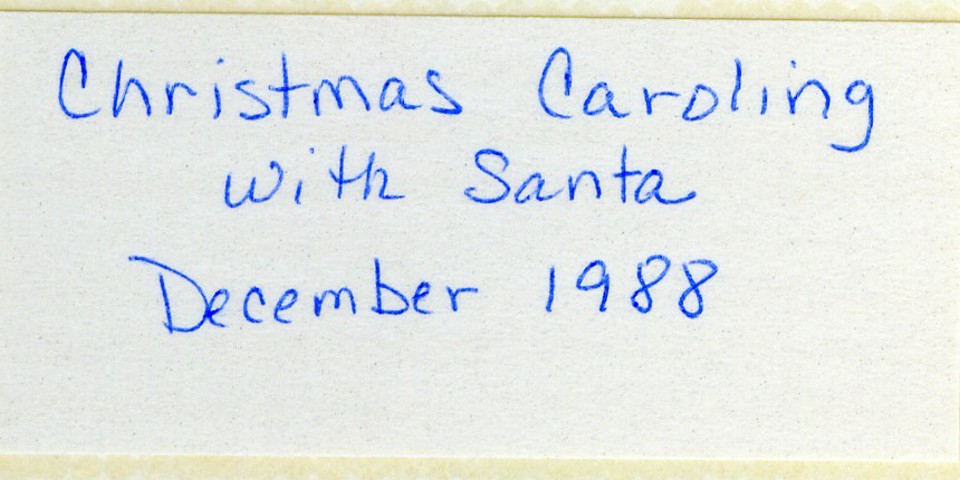 Christmas Caroling
with Santa
December 1988